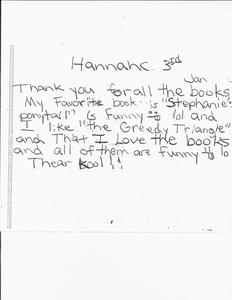 Hannahc. 3rd
Jan
Thank you for all the books
My Favorite book is "Stephanie
ponytail" is Funny lol and
I like "the Greedy Triangle"
and That I Love the books
and all of them are funny lo
Thear kool!!